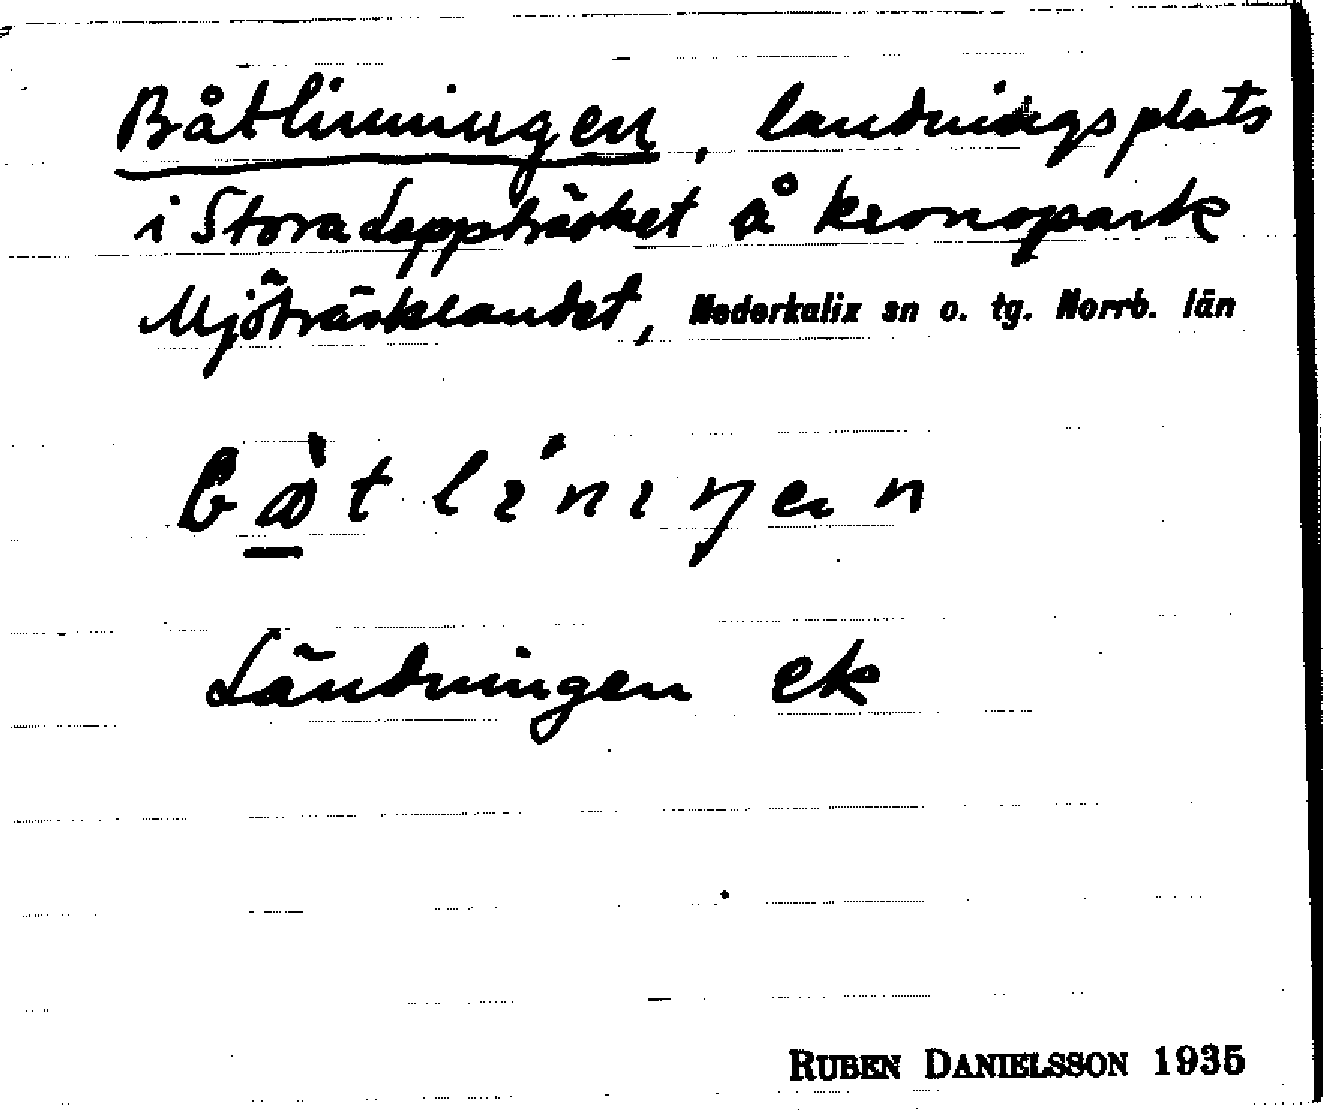 Båtlinningen, landningsplats
i Stora Lappträsket å kronopark
Mjöträsklandet, Nederkalix sn o. tg. Norrb. län
bàtlíniŋen
Ländningen ek
RUBEN DANIELSSON 1935